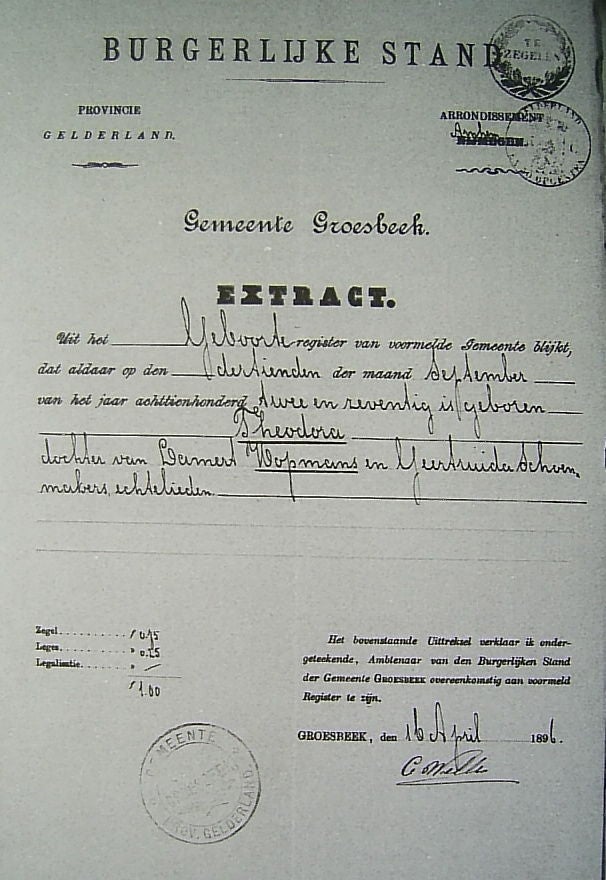 BURGERLIJKE STAND
TE
ZEGELEN
PROVINCIE
GELDERLAND.
ARRONDISSEMENT
Arnhem
GELDERLAND
Gemeente Groesbeek.
EXTRACT.
Uit het Geboorte register van voormelde Gemeente blijkt,
dat aldaar op den dertienden der maand September
van het jaar achttienhonderd twee en zeventig is geboren
Theodora
dochter van Lamert Wopmans en Geertruida Schoen,
makers, echtelieden.
Zegel.......... f 0.75
Leges.......... " 0.25
Legalisatie...... " —
f 1.00
Het bovenstaande Uittreksel verklaar ik onder-
geteekende, Ambtenaar van den Burgerlijken Stand
der Gemeente GROESBEEK overeenkomstig aan voormeld
Register te zijn.
GROESBEEK, den 16 April 1896.
GEMEENTE
PROV. GELDERLAND